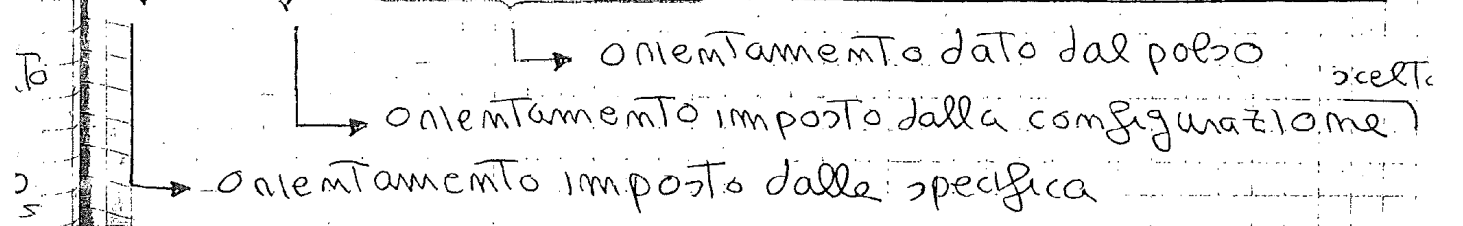 orientamento dato dal polso
scelta
orientamento imposto dalla configurazione
orientamento imposto dalle specifica